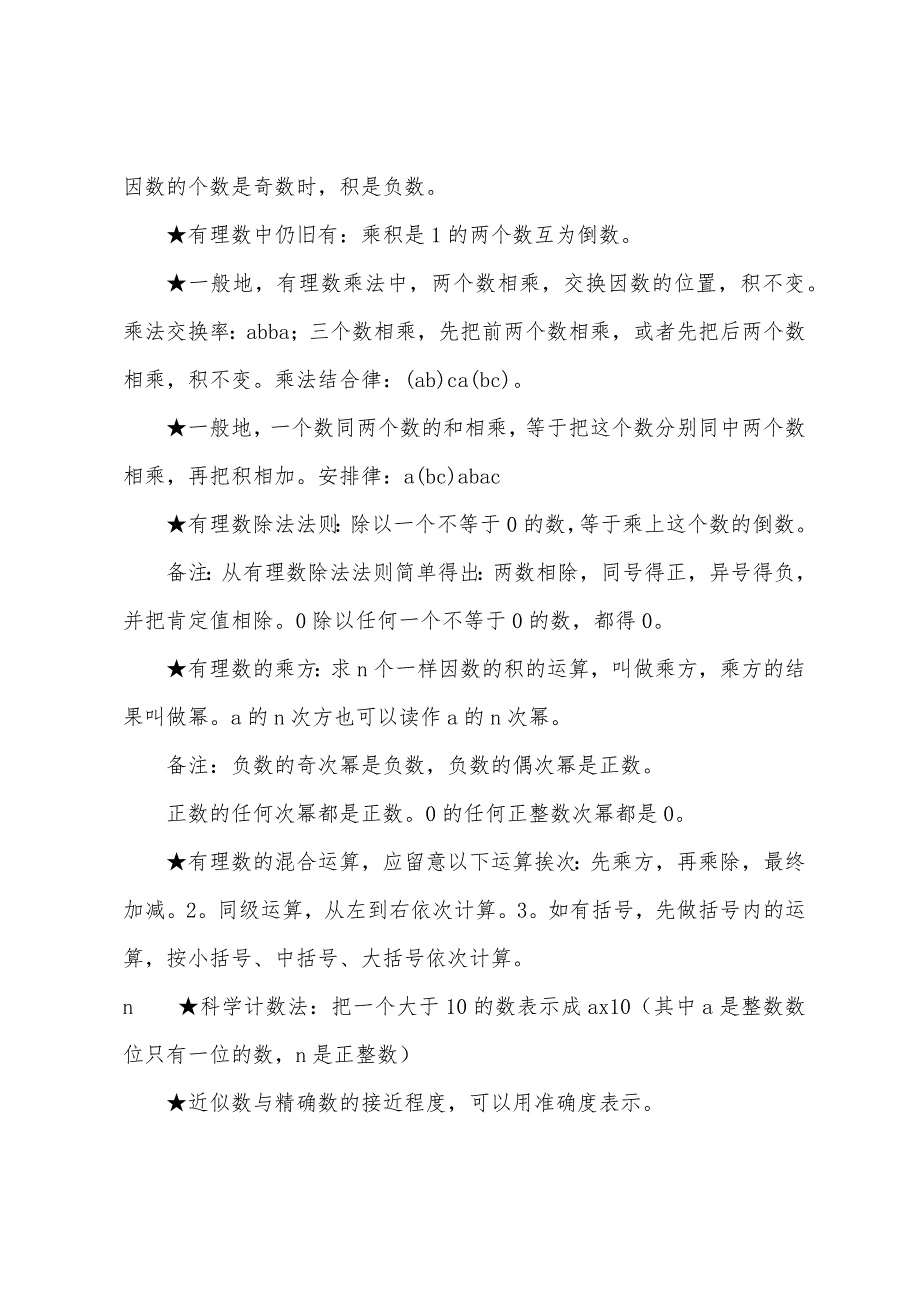 因数的个数是奇数时，积是负数。
★有理数中仍旧有：乘积是1的两个数互为倒数。
★一般地，有理数乘法中，两个数相乘，交换因数的位置，积不变。
乘法交换率：abba；三个数相乘，先把前两个数相乘，或者先把后两个数
相乘，积不变。乘法结合律：(ab)ca(bc)。
★一般地，一个数同两个数的和相乘，等于把这个数分别同中两个数
相乘，再把积相加。安排律：a(bc)abac
★有理数除法法则：除以一个不等于0的数，等于乘上这个数的倒数。
备注：从有理数除法法则简单得出：两数相除，同号得正，异号得负，
并把肯定值相除。0除以任何一个不等于0的数，都得0。
★有理数的乘方：求n个一样因数的积的运算，叫做乘方，乘方的结
果叫做幂。a的n次方也可以读作a的n次幂。
备注：负数的奇次幂是负数，负数的偶次幂是正数。
正数的任何次幂都是正数。0的任何正整数次幂都是0。
★有理数的混合运算，应留意以下运算挨次：先乘方，再乘除，最终
加减。2。同级运算，从左到右依次计算。3。如有括号，先做括号内的运
算，按小括号、中括号、大括号依次计算。
n ★科学计数法：把一个大于10的数表示成ax10（其中a是整数数
位只有一位的数，n是正整数）
★近似数与精确数的接近程度，可以用准确度表示。